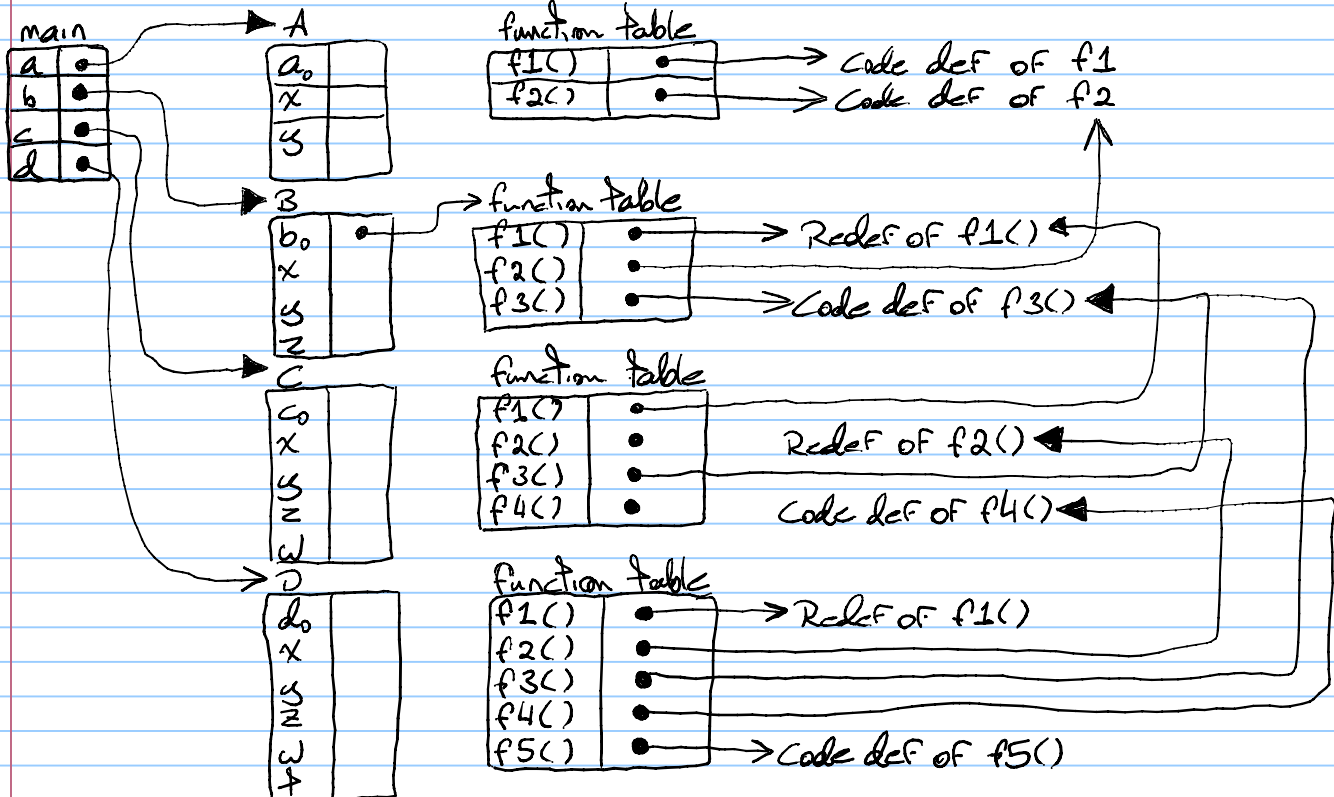 main
a
b
c
d
A
a₀
x
y
function table
f1()
f2()
Code def of f1
Code def of f2
B
b₀
x
y
z
function table
f1()
f2()
f3()
Redef of f1()
Code def of f3()
C
c₀
x
y
z
w
function table
f1()
f2()
f3()
f4()
Redef of f2()
Code def of f4()
D
d₀
x
y
z
w
t
function table
f1()
f2()
f3()
f4()
f5()
Redef of f1()
Code def of f5()